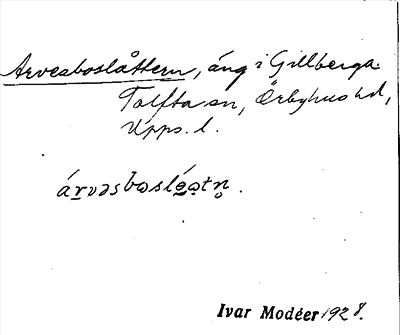 Arvesboslåttern, äng i Gillberga
Tolfta sn, Örbyhus hd,
Upps. l.
árvəsbωslɷ́ωtn̥.
Ivar Modéer 1928.